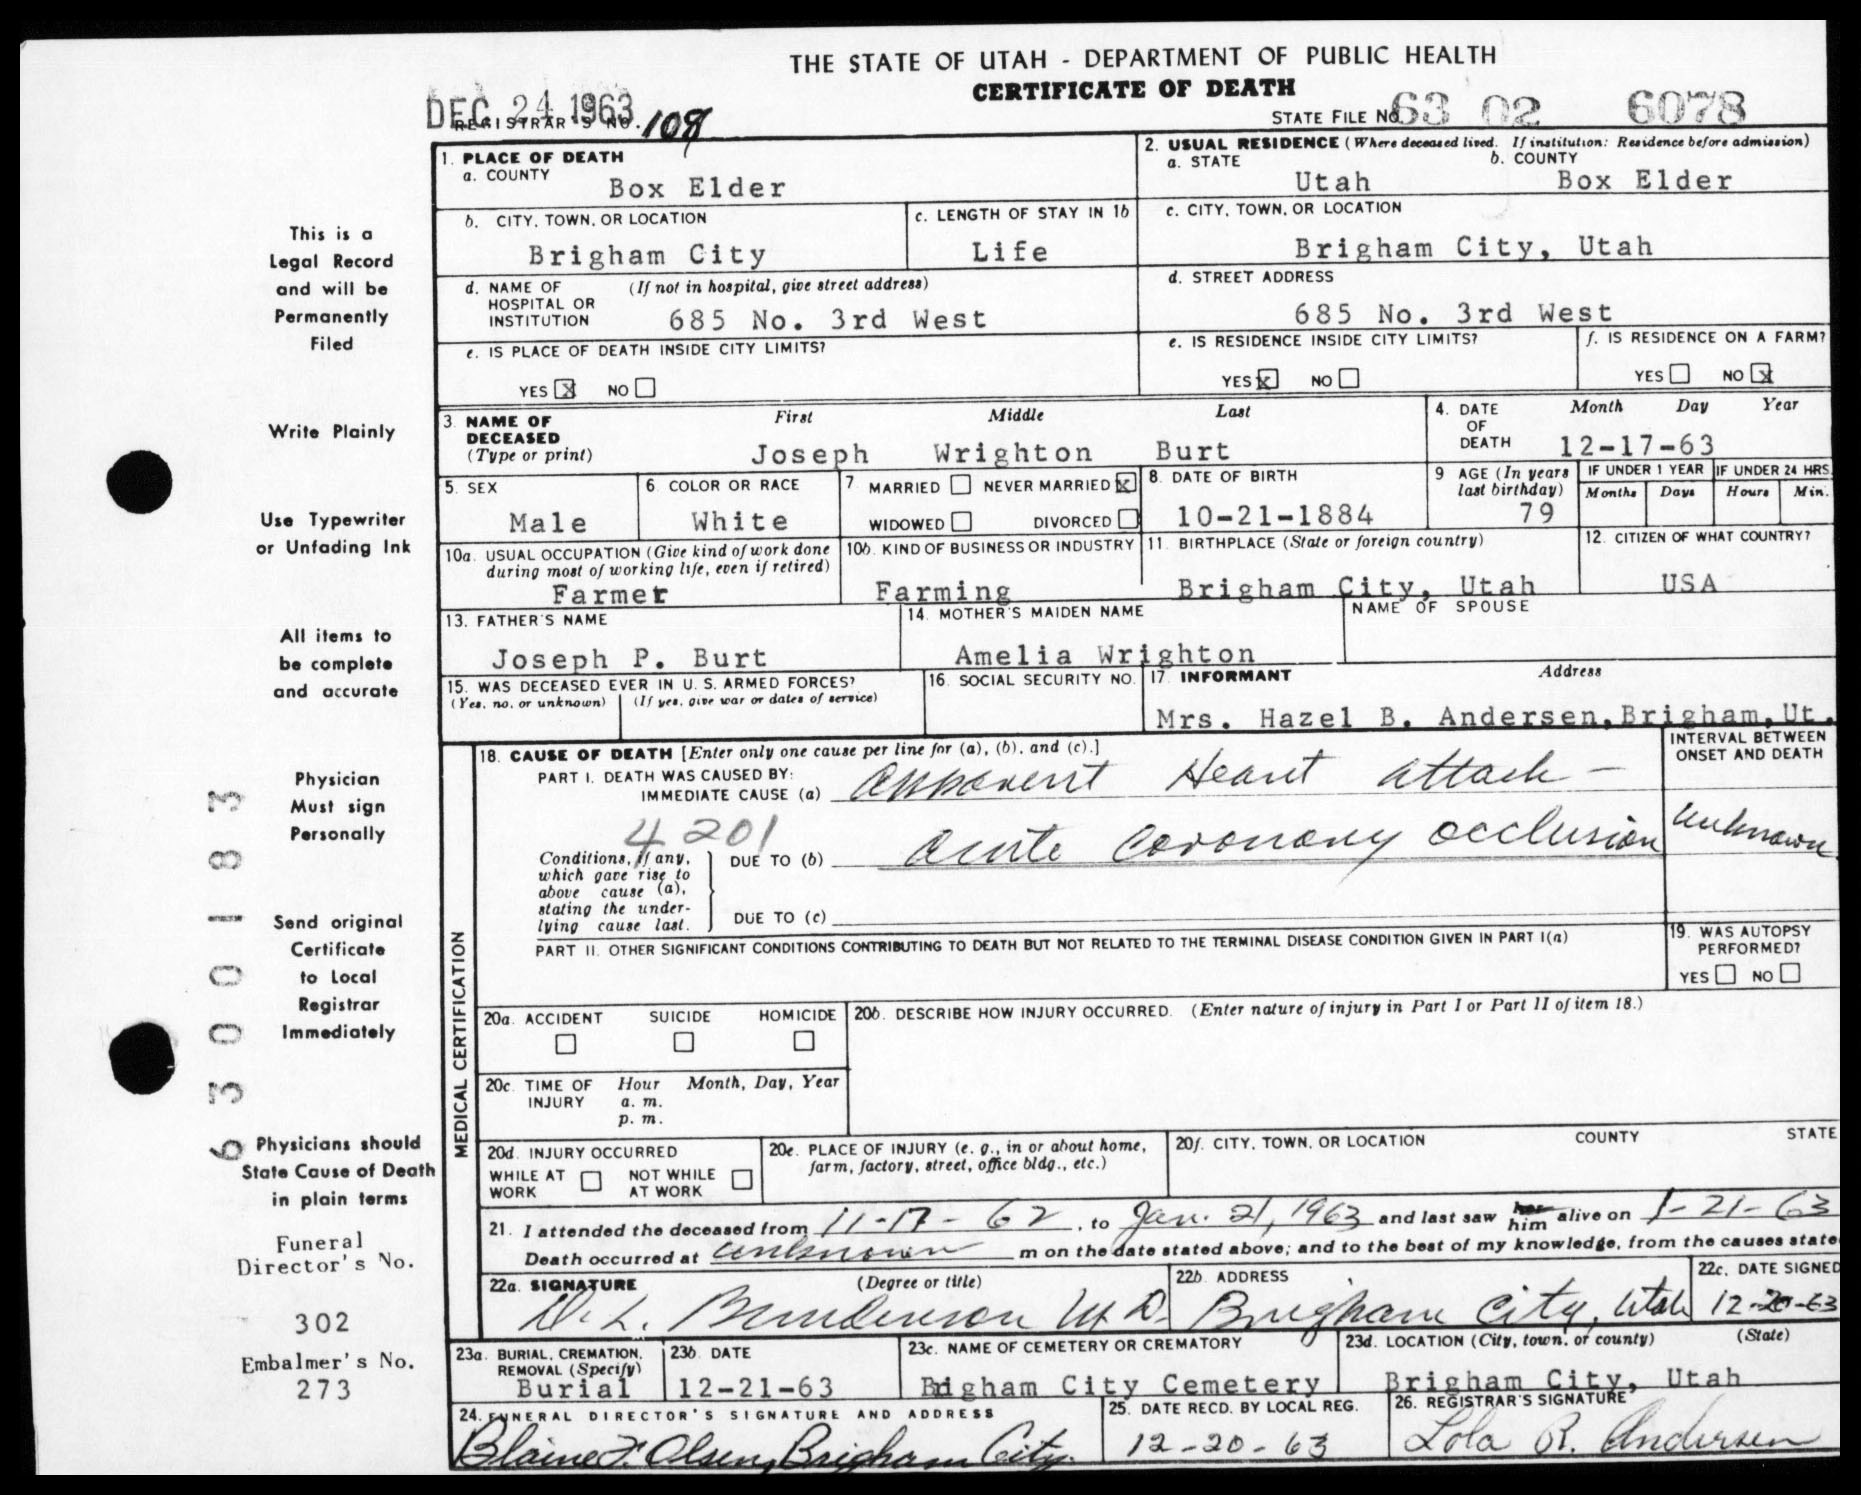 THE STATE OF UTAH - DEPARTMENT OF PUBLIC HEALTH
CERTIFICATE OF DEATH
DEC 24 1963
REGISTRAR'S NO. 108
STATE FILE NO. 63 02 6078
1. PLACE OF DEATH
a. COUNTY
Box Elder
2. USUAL RESIDENCE (Where deceased lived. If institution: Residence before admission)
a. STATE b. COUNTY
Utah Box Elder
b. CITY, TOWN, OR LOCATION
Brigham City
c. LENGTH OF STAY IN 1b
Life
c. CITY, TOWN, OR LOCATION
Brigham City, Utah
d. NAME OF HOSPITAL OR INSTITUTION (If not in hospital, give street address)
685 No. 3rd West
d. STREET ADDRESS
685 No. 3rd West
e. IS PLACE OF DEATH INSIDE CITY LIMITS?
YES X NO
e. IS RESIDENCE INSIDE CITY LIMITS?
YES X NO
f. IS RESIDENCE ON A FARM?
YES NO X
3. NAME OF DECEASED (Type or print)
First Middle Last
Joseph Wrighton Burt
4. DATE OF DEATH
Month Day Year
12-17-63
5. SEX
Male
6. COLOR OR RACE
White
7. MARRIED NEVER MARRIED X
WIDOWED DIVORCED
8. DATE OF BIRTH
10-21-1884
9 AGE (In years last birthday)
79
IF UNDER 1 YEAR IF UNDER 24 HRS.
Months Days Hours Min.
10a. USUAL OCCUPATION (Give kind of work done during most of working life, even if retired)
Farmer
10b. KIND OF BUSINESS OR INDUSTRY
Farming
11. BIRTHPLACE (State or foreign country)
Brigham City, Utah
12. CITIZEN OF WHAT COUNTRY?
USA
13. FATHER'S NAME
Joseph P. Burt
14. MOTHER'S MAIDEN NAME
Amelia Wrighton
NAME OF SPOUSE
15. WAS DECEASED EVER IN U. S. ARMED FORCES?
(Yes, no, or unknown) (If yes, give war or dates of service)
16. SOCIAL SECURITY NO.
17. INFORMANT Address
Mrs. Hazel B. Andersen, Brigham, Ut.
MEDICAL CERTIFICATION
18. CAUSE OF DEATH [Enter only one cause per line for (a), (b), and (c).]
INTERVAL BETWEEN ONSET AND DEATH
PART I. DEATH WAS CAUSED BY:
IMMEDIATE CAUSE (a) Apparent Heart attack -
4201
Conditions, if any, which gave rise to above cause (a), stating the underlying cause last.
DUE TO (b) acute coronary occlusion
unknown
DUE TO (c)
PART II. OTHER SIGNIFICANT CONDITIONS CONTRIBUTING TO DEATH BUT NOT RELATED TO THE TERMINAL DISEASE CONDITION GIVEN IN PART I(a)
19. WAS AUTOPSY PERFORMED?
YES NO
20a. ACCIDENT SUICIDE HOMICIDE
20b. DESCRIBE HOW INJURY OCCURRED. (Enter nature of injury in Part I or Part II of item 18.)
20c. TIME OF INJURY Hour Month, Day, Year
a. m.
p. m.
20d. INJURY OCCURRED
WHILE AT WORK NOT WHILE AT WORK
20e. PLACE OF INJURY (e. g., in or about home, farm, factory, street, office bldg., etc.)
20f. CITY, TOWN, OR LOCATION COUNTY STATE
21. I attended the deceased from 11-17-62, to Jan. 21, 1963 and last saw her him alive on 1-21-63
Death occurred at unknown m on the date stated above; and to the best of my knowledge, from the causes state
22a. SIGNATURE (Degree or title)
D. L. Bunderson M D.
22b. ADDRESS
Brigham City, Utah
22c. DATE SIGNED
12-20-63
23a. BURIAL, CREMATION, REMOVAL (Specify)
Burial
23b. DATE
12-21-63
23c. NAME OF CEMETERY OR CREMATORY
Brigham City Cemetery
23d. LOCATION (City, town, or county) (State)
Brigham City, Utah
24. FUNERAL DIRECTOR'S SIGNATURE AND ADDRESS
Blaine F. Olsen, Brigham City.
25. DATE RECD. BY LOCAL REG.
12-20-63
26. REGISTRAR'S SIGNATURE
Lola R. Andersen
This is a
Legal Record
and will be
Permanently
Filed
Write Plainly
Use Typewriter
or Unfading Ink
All items to
be complete
and accurate
Physician
Must sign
Personally
Send original
Certificate
to Local
Registrar
Immediately
Physicians should
State Cause of Death
in plain terms
Funeral
Director's No.
302
Embalmer's No.
273
6300183